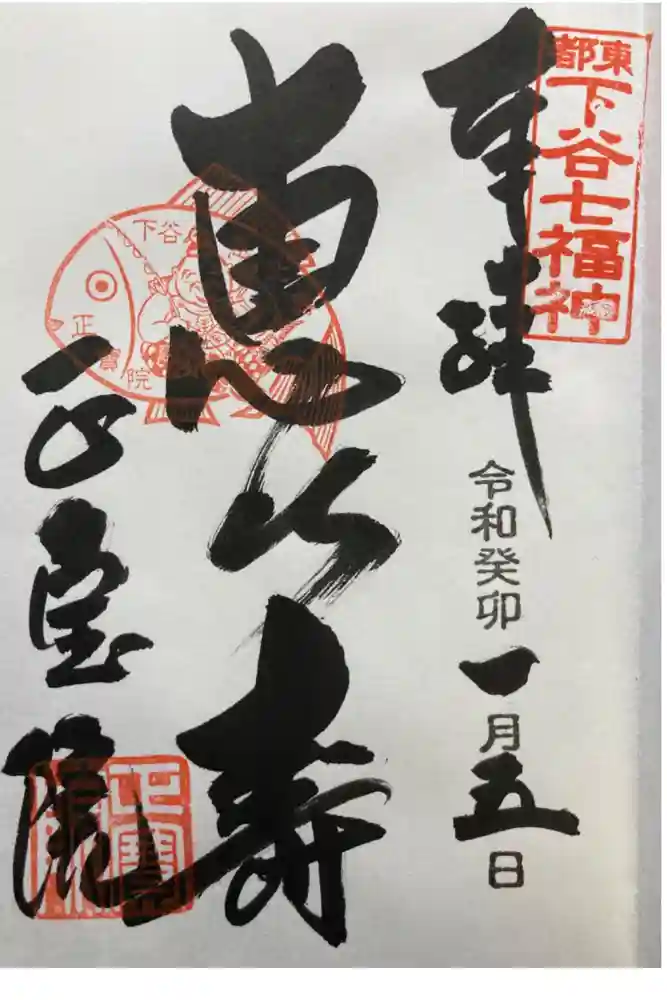 東都
下谷七福神
奉拝
令和癸卯
一月五日
恵比寿
下谷
正寶院
正宝院
正寶院